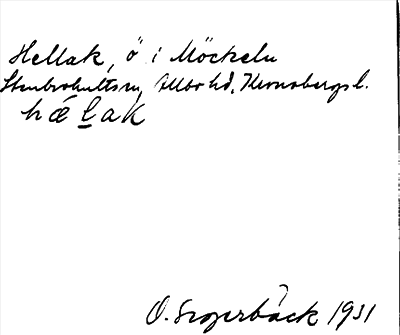 Hellak, ö i Möckeln
Stenbrohults sn, Allbo hd, Kronobergs l.
hǽl̲ak
O. Segerbäck 1931